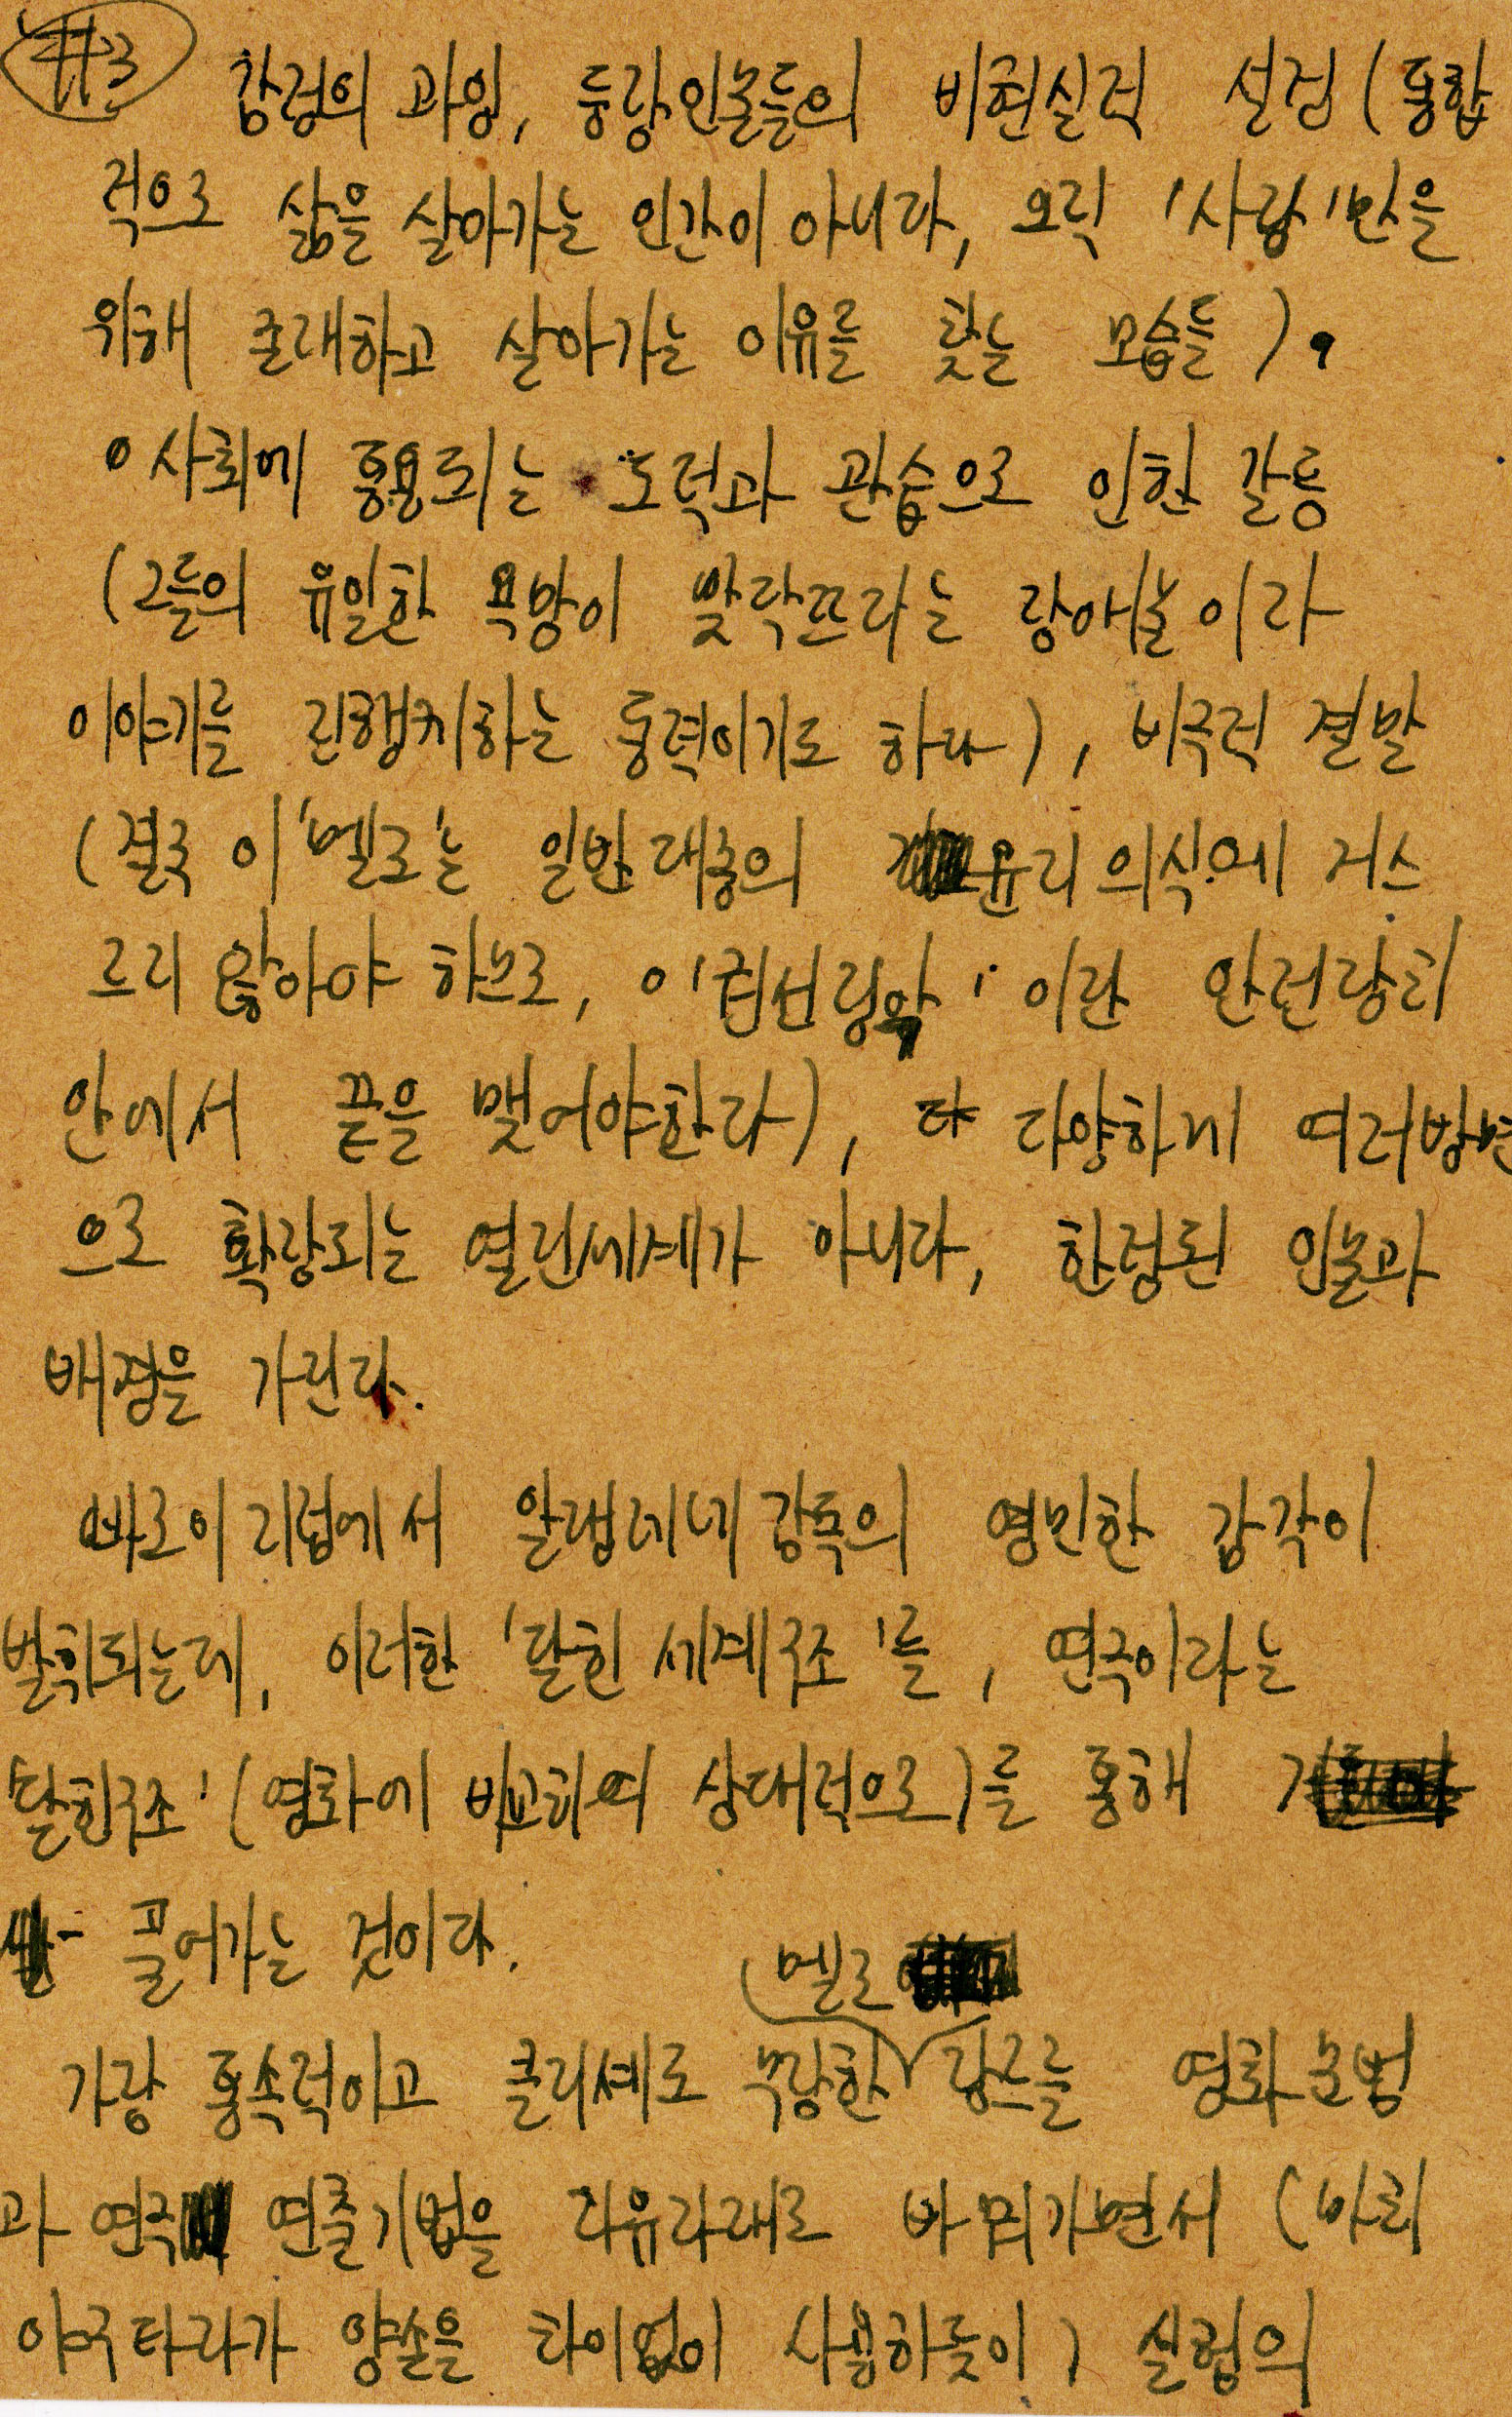 #3 감정의 과잉, 등장인물들의 비현실적 설정(통합
적으로 삶을 살아가는 인간이 아니라, 오직 '사랑'만을
위해 존재하고 살아가는 이유를 찾는 모습들),
사회에 통용되는 도덕과 관습으로 인한 갈등
(그들의 유일한 욕망이 맞닥뜨리는 장애물이자
이야기를 진행케하는 동력이기도 하다), 비극적 결말
(결국 이 '멜로'는 일반대중의 윤리의식에 거스
르지 않아야 하므로, '권선징악'이란 안전장치
안에서 끝을 맺어야한다), 다양하게 여러방면
으로 확장되는 열린세계가 아니라, 한정된 인물과
배경을 가진다.
바로이 지점에서 알랭레네감독의 영민한 감각이
발휘되는데, 이러한 '닫힌 세계구조'를, 연극이라는
'닫힌구조' (영화에 비교하여 상대적으로)를 통해
끌어가는 것이다.
멜로
가장 통속적이고 클리셰로 무장한 장르를 영화문법
과 연극 연출기법을 자유자재로 바꿔가면서 (마치
야구타자가 양손을 차이없이 사용하듯이) 실험의